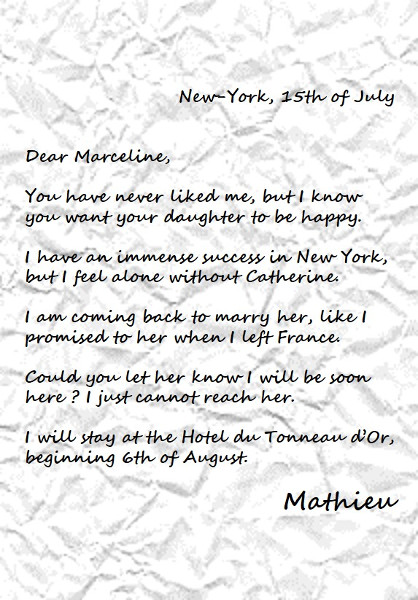 New-York, 15th of July
Dear Marceline,
You have never liked me, but I know
you want your daughter to be happy.
I have an immense success in New York,
but I feel alone without Catherine.
I am coming back to marry her, like I
promised to her when I left France.
Could you let her know I will be soon
here ? I just cannot reach her.
I will stay at the Hotel du Tonneau d'Or,
beginning 6th of August.
Mathieu